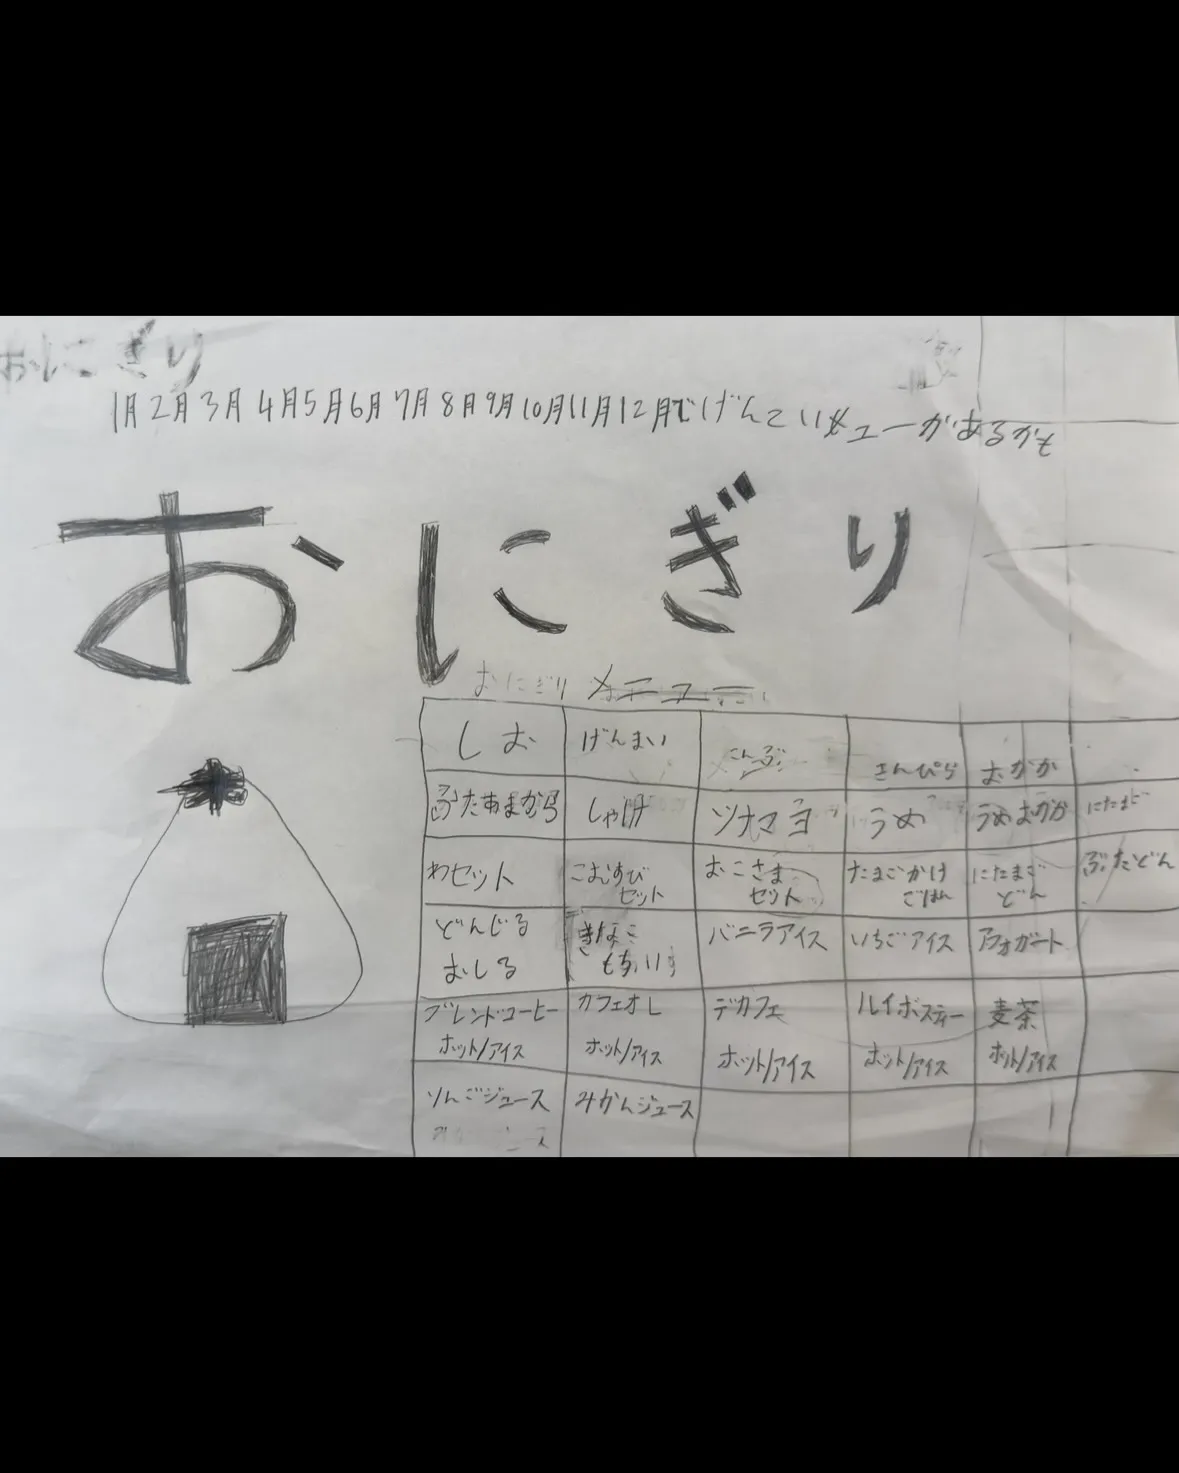 おにぎり
1月2月3月4月5月6月7月8月9月10月11月12月でげんていメニューがあるかも
おにぎり
おにぎり メニュー
しお げんまい こんぶ きんぴら おかか
ぶたあまから しゃけ ツナマヨ うめ うめおかか にたまご
わセット こむすびセット おこさまセット たまごかけごはん にたまごどん ぶたどん
どんじる きなこ バニラアイス いちごアイス アフォガート
おしる もち
ブレンドコーヒー カフェオレ デカフェ ルイボスティー 麦茶
ホット/アイス ホット/アイス ホット/アイス ホット/アイス ホット/アイス
りんごジュース みかんジュース